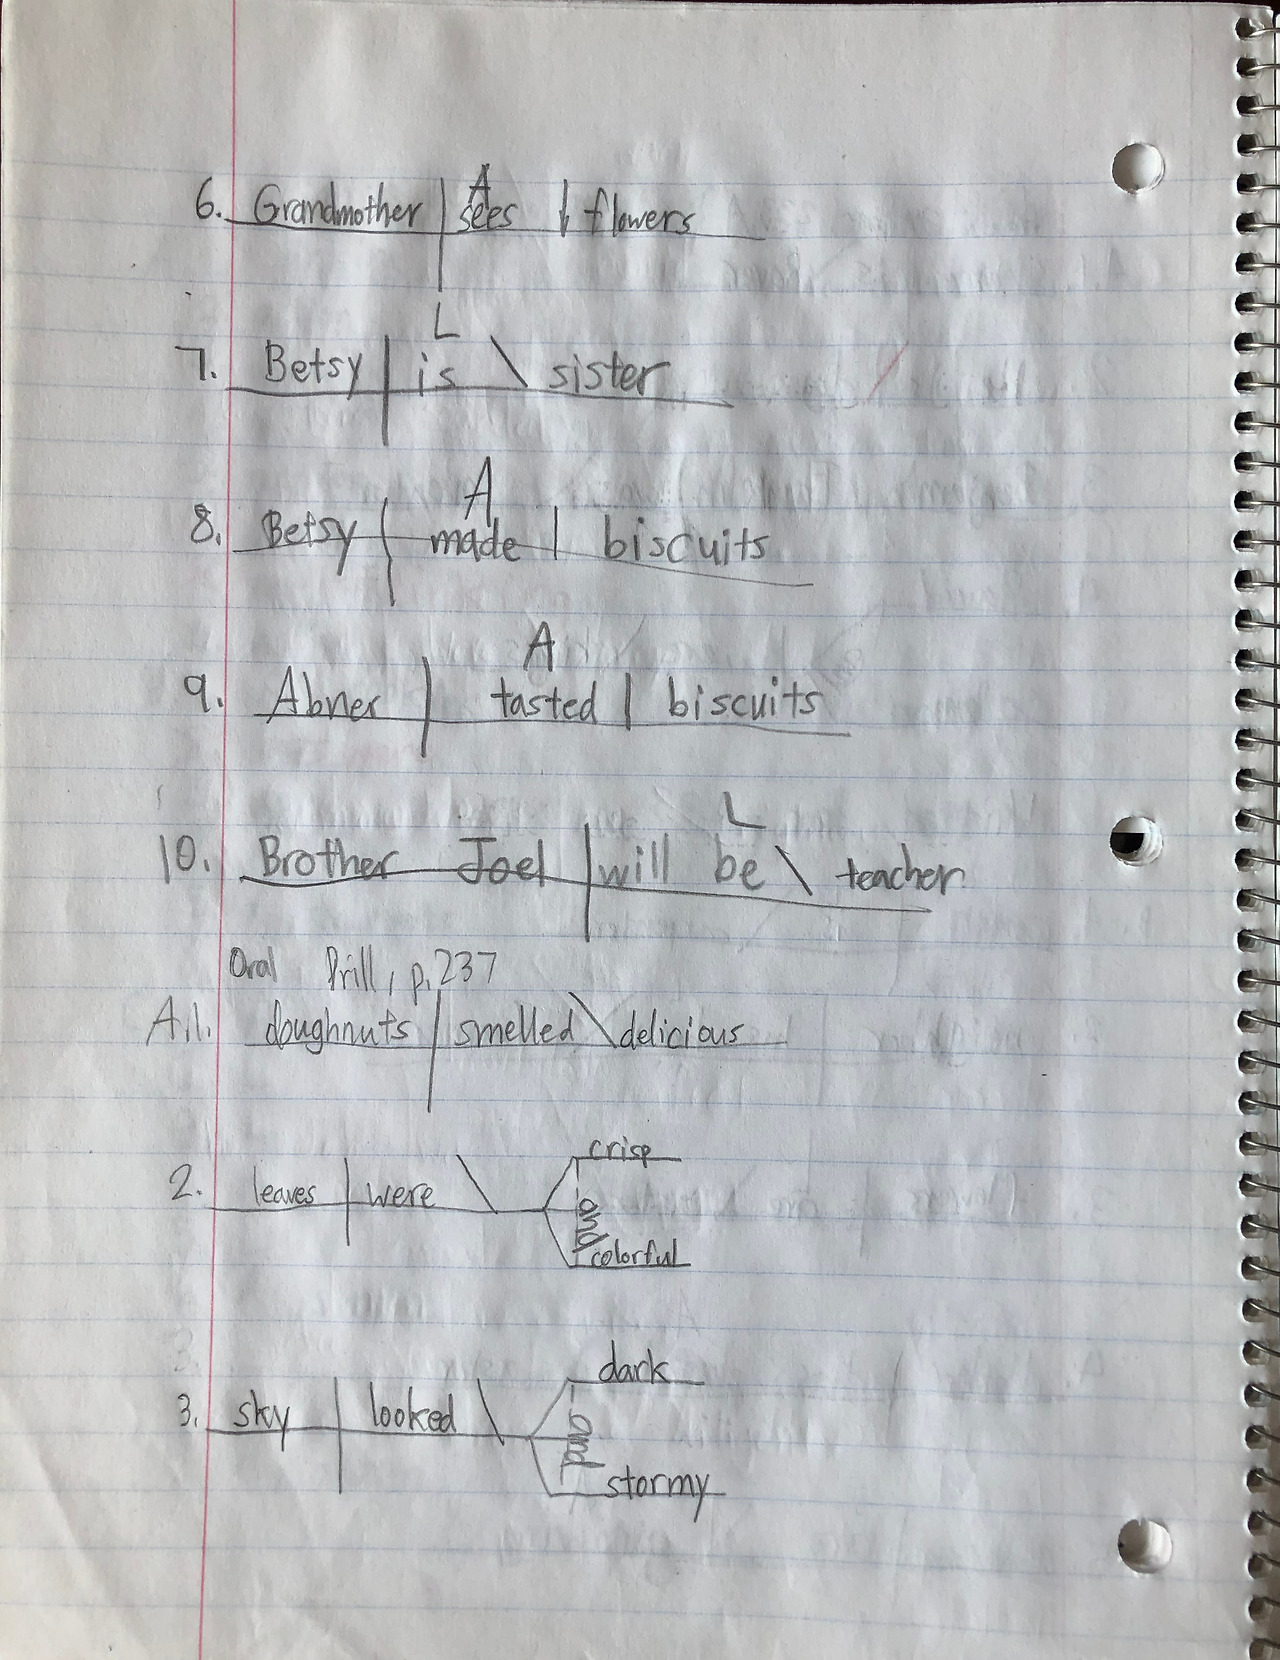 A
6. Grandmother sees flowers
L
7. Betsy is sister
A
8. Betsy made biscuits
A
9. Abner tasted biscuits
L
10. Brother Joel will be teacher
Oral Drill, p. 237
A.1. doughnuts smelled delicious
crisp
2. leaves were and
colorful
dark
3. sky looked and
stormy